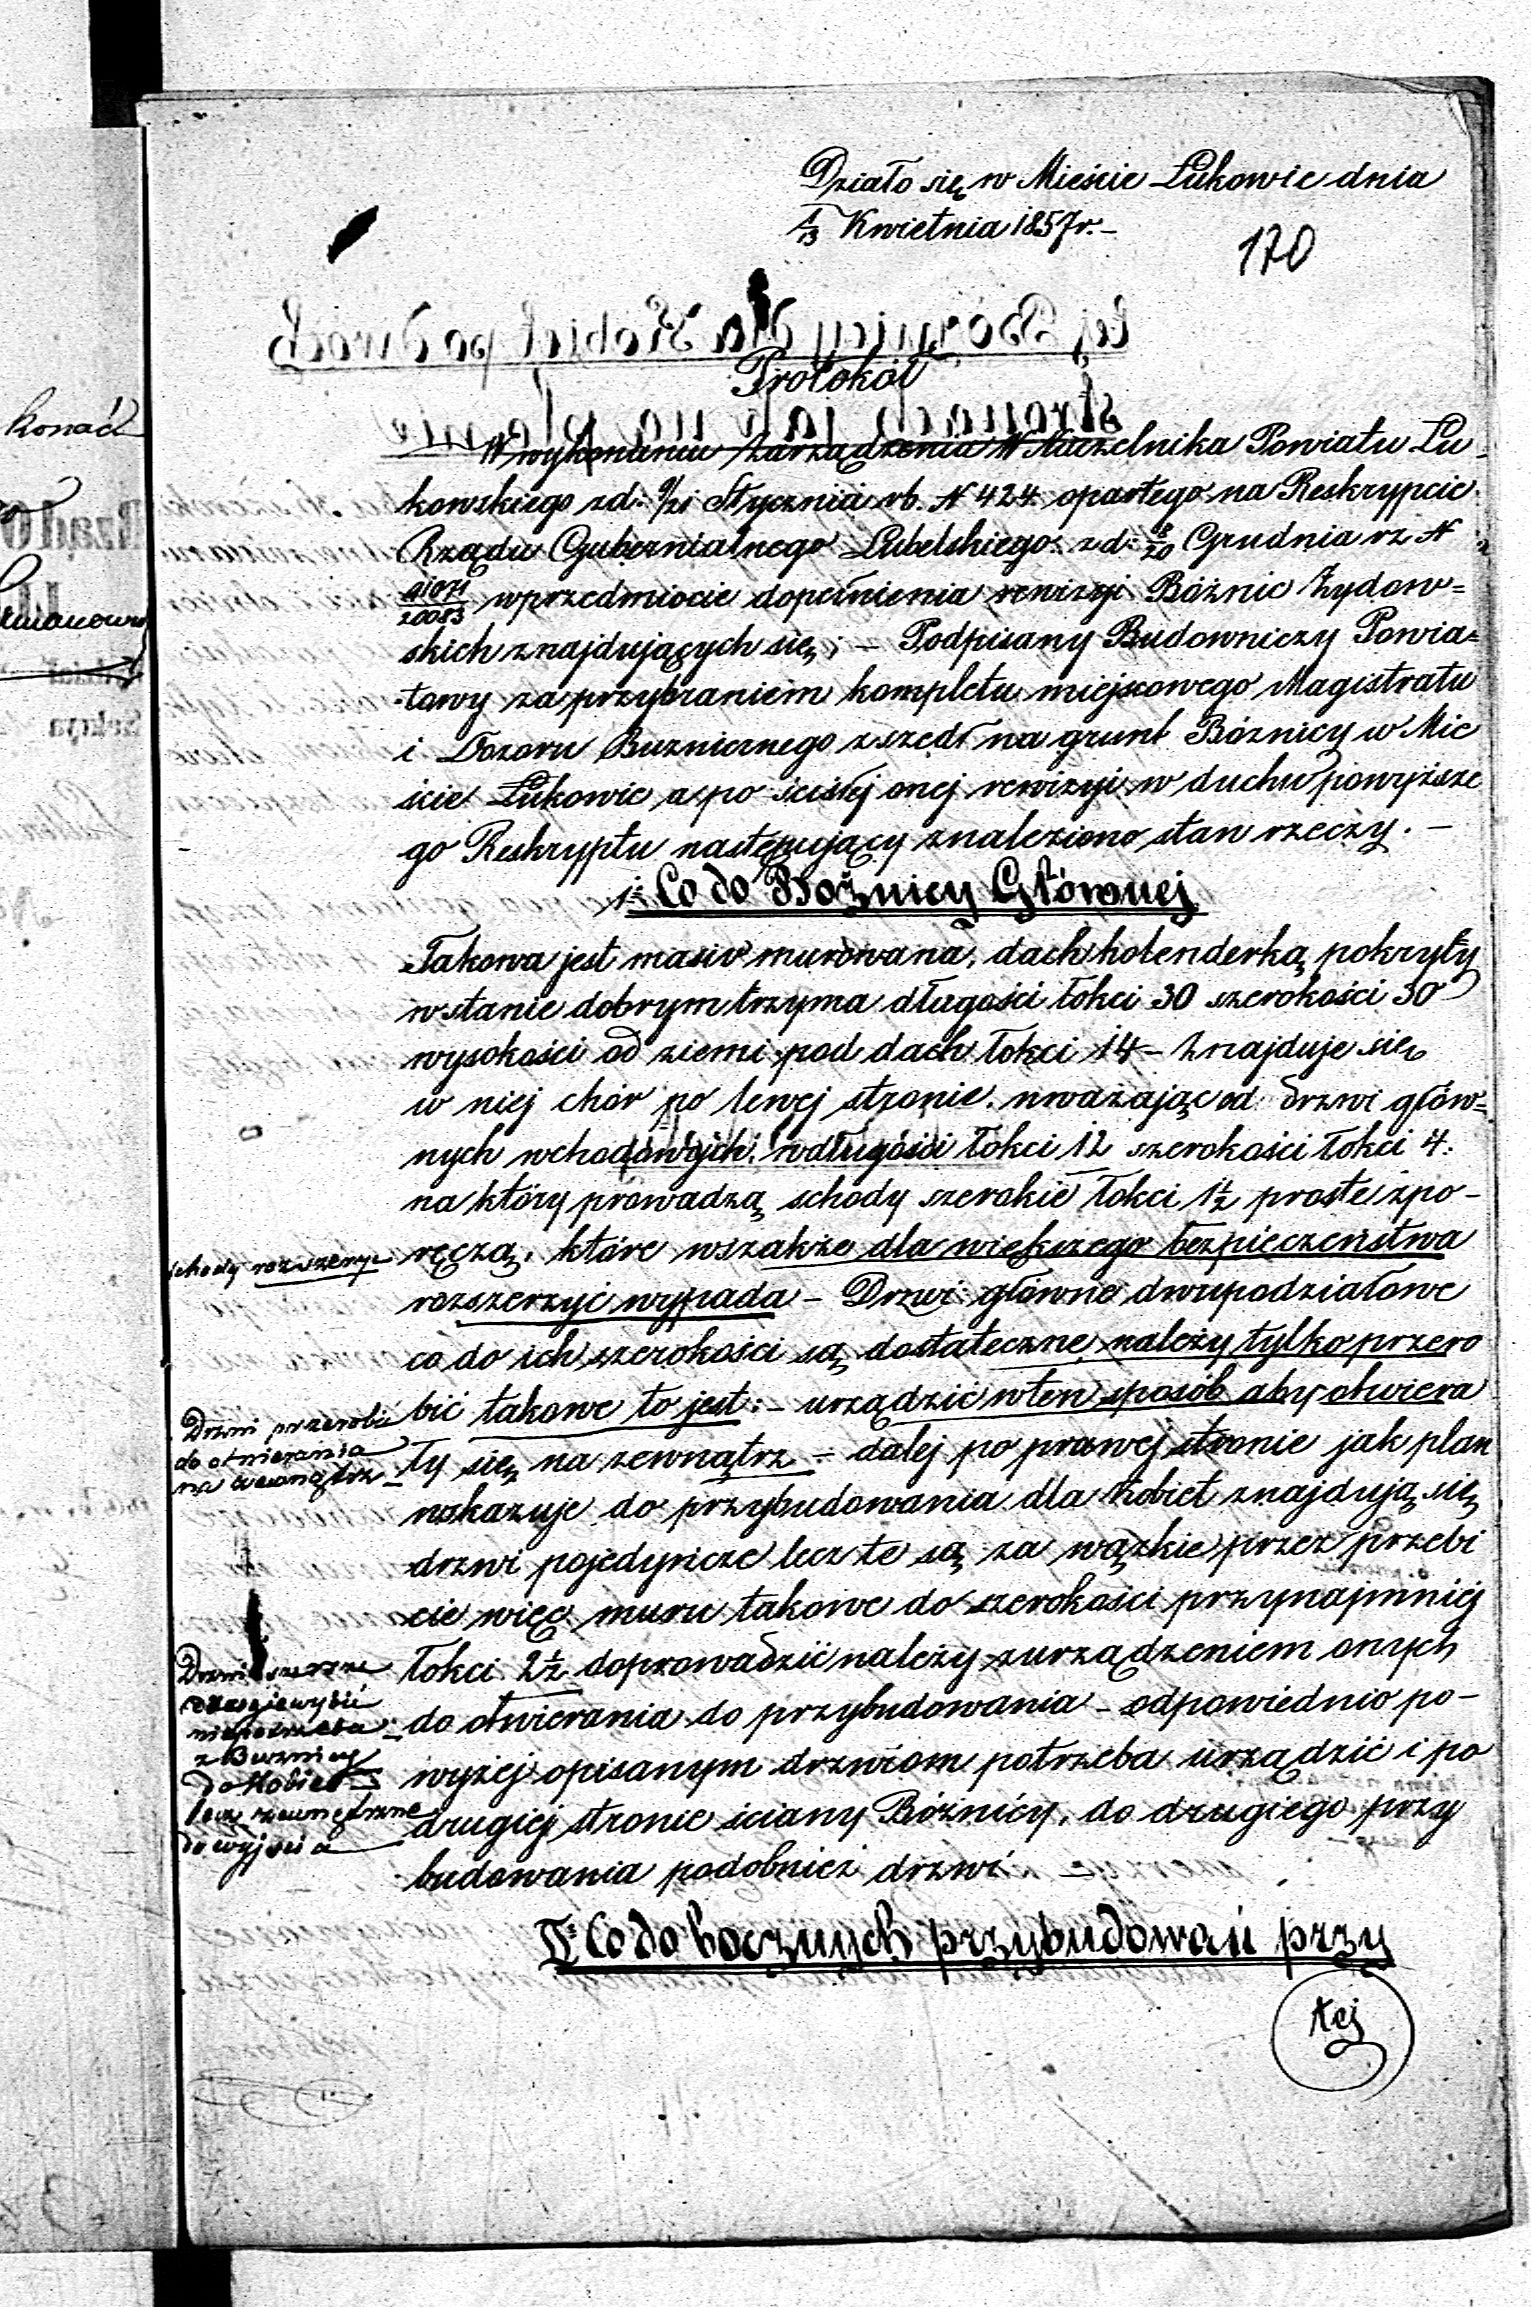 Działo się w Mieście Łukowie dnia
1/13 Kwietnia 1857 r. –
170
Protokół
W wykonaniu Zarządzenia W Naczelnika Powiatu Łu-
kowskiego zd: 9/21 Stycznia rb. N 424 opartego na Reskrypcie
Rządu Gubernialnego Lubelskiego zd: 8/20 Grudnia rz N
/20083 w przedmiocie dopełnienia rewizyi Bóżnic Żydow=
skich znajdujących się; – Podpisany Budowniczy Powia=
towy za przybraniem kompletu miejscowego Magistratu
i Dozoru Buźnicznego zszedł na grunt Bóżnicy w Mie
ście Łukowie, a po ścisłej onej rewizyi w duchu powyższe
go Reskryptu następujący znaleziono stan rzeczy. –
1º Co do Bóżnicy Głównej
Takowa jest masiv murowana, dach holenderką pokryty
w stanie dobrym trzyma długości łokci 30 szerokości 30
wysokości od ziemi pod dach łokci 14 – Znajduje się
w niej chór po lewej stronie uważając od drzwi głów=
nych wchodowych, w długości łokci 12 szerokości łokci 4:
na który prowadzą schody szerokie łokci 1½ proste z po-
ręczą, które wszakże dla większego bezpieczeństwa
rozszerzyć wypada – Drzwi główne dwupodziałowe
co do ich szerokości są dostateczne, należy tylko przero
bić takowe to jest: – urządzić w ten sposób aby otwiera
ły się na zewnątrz – dalej po prawej stronie jak plan
wskazuje do przybudowania dla Kobiet znajdują się
drzwi pojedyńcze lecz te są za wązkie przez przebi
cie więc muru takowe do szerokości przynajmniej
łokci 2½ doprowadzić należy z urządzeniem onych
do otwierania do przybudowania – odpowiednio po-
wyżej opisanym drzwiom potrzeba urządzić i po
drugiej stronie ściany Bóżnicy, do drugiego przy
budowania podobnież drzwi –
IIº Co do bocznych przybudowań przy
tej
schody rozszerzyć
Drzwi przerobić
do otwierania
na zewnątrz –
Drzwi szersze
niepotrzeba
z Buźnicy
do Kobiet –
lecz zewnętrzne
do wyjścia
konać